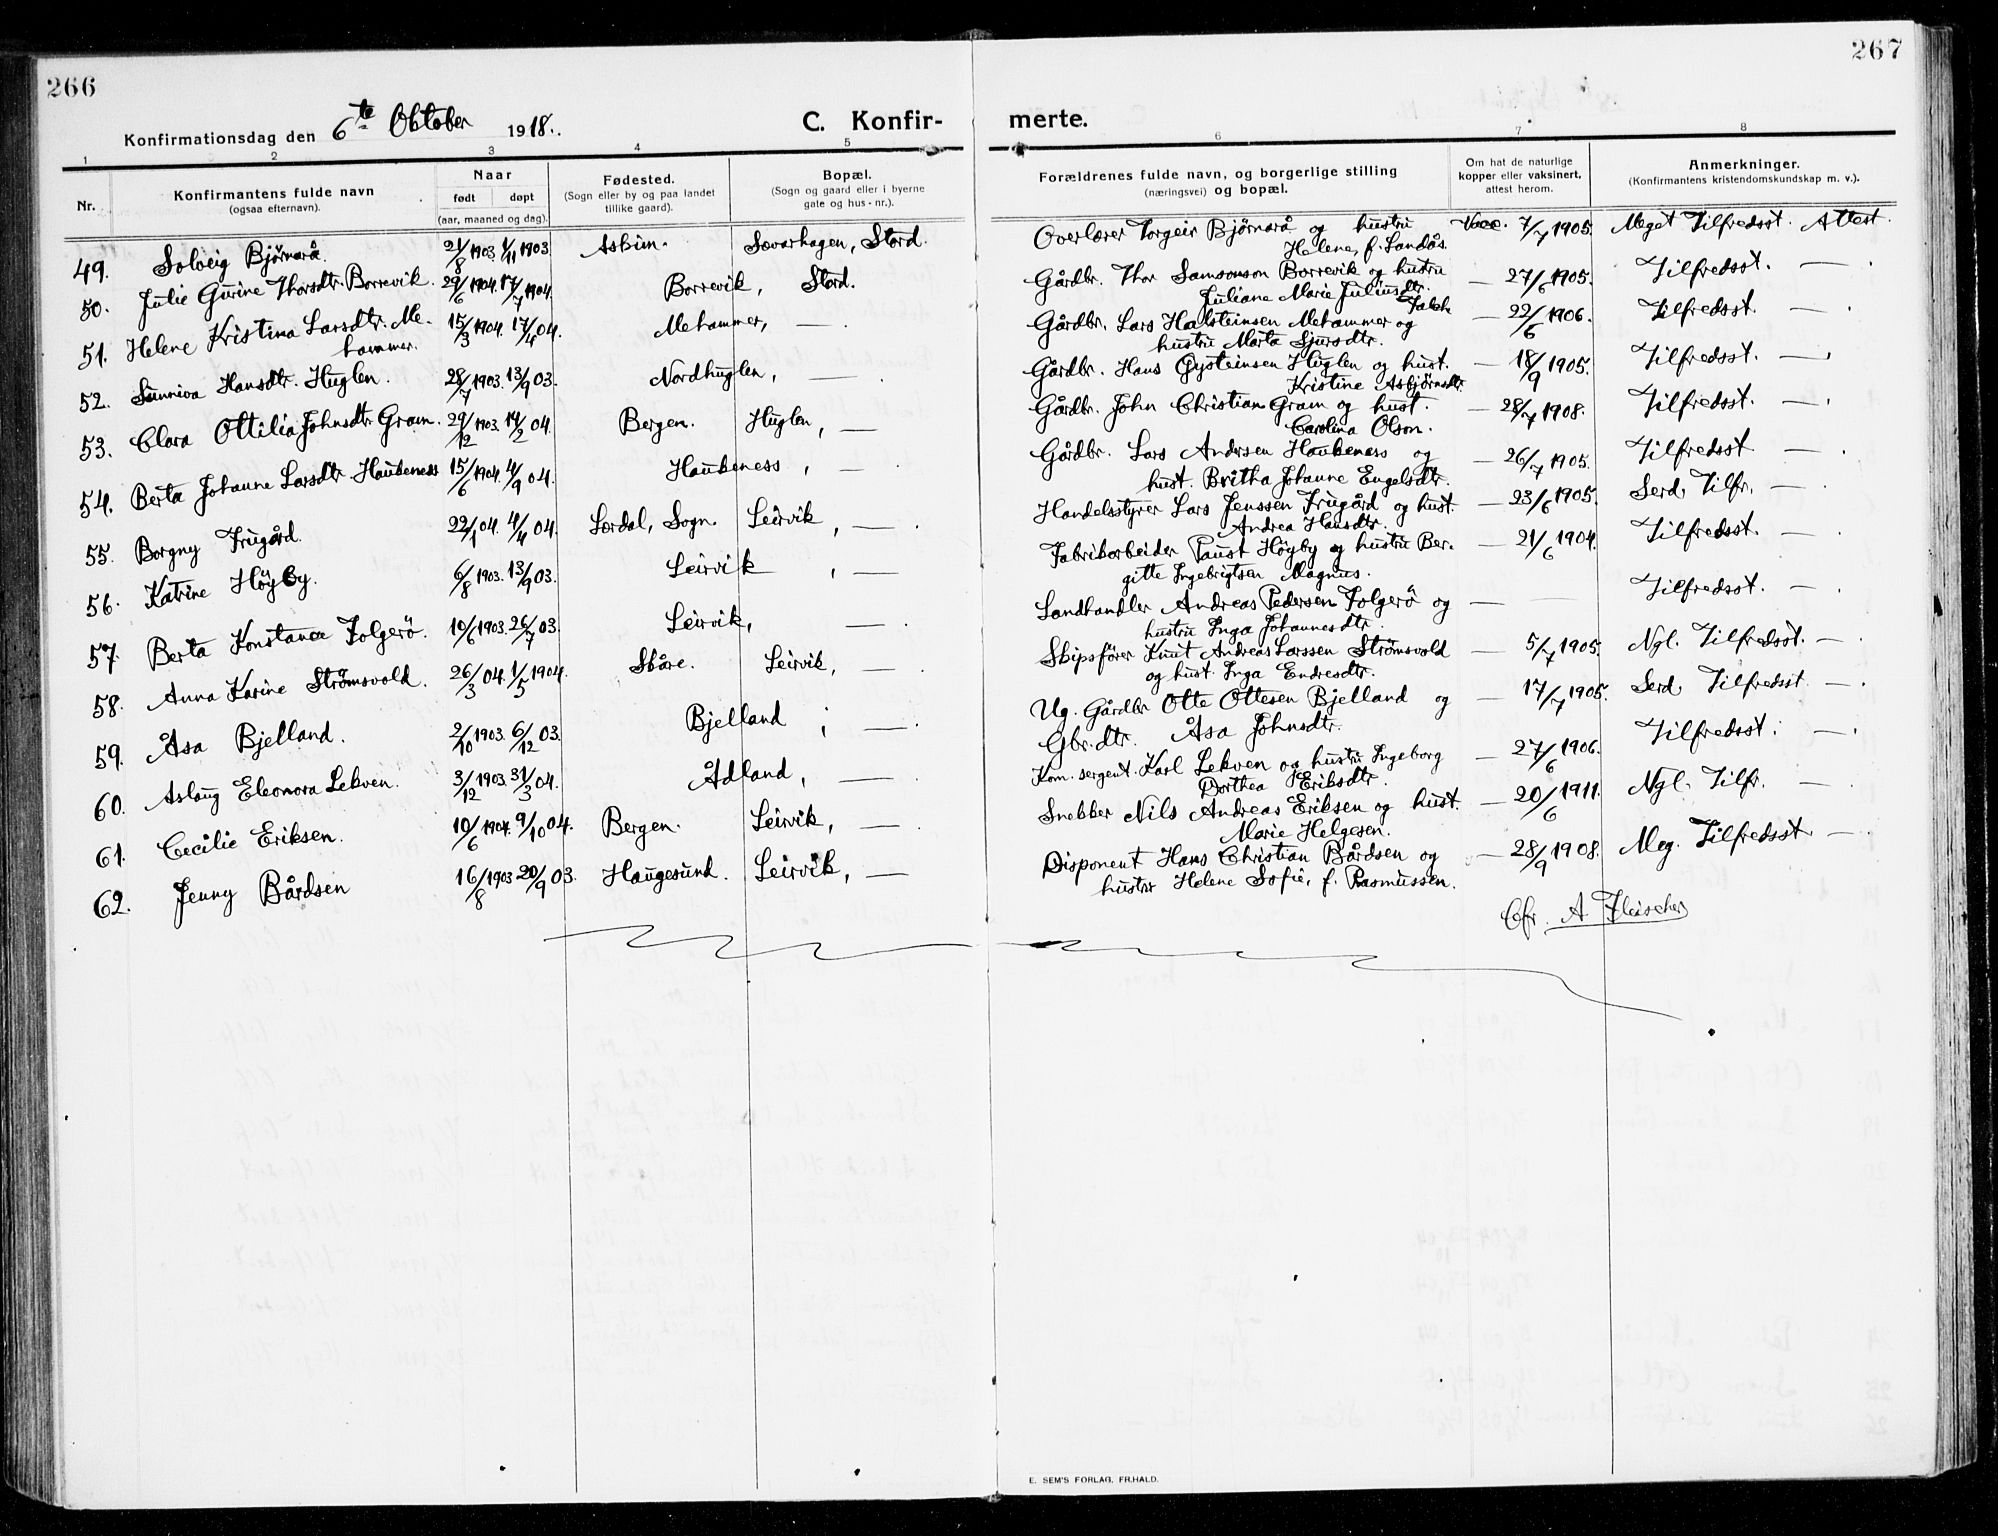 266
Konfirmationsdag den 6te Oktober 1918.
C. Konfir-
1 2 3 4 5
Nr. Konfirmantens fulde navn (ogsaa efternavn). Naar født døpt (aar, maaned og dag). Fødested. (Sogn eller by og paa landet tillike gaard). Bopæl. (Sogn og gaard eller i byerne gate og hus-nr.).
49. Solveig Bjørnarå. 21/8 1903 1/11 1903 Askim. Sævarhagen, Stord.
50. Julie Gurine Thorsdtr. Borrevik. 29/6 1904. 17/7 1904. Borrevik, Stord.
51. Helene Kristina Larsdtr. Me-
hammer. 15/3 1904. 17/4 04. Mehammer, — .
52. Sunniva Hansdtr. Huglen. 28/7 1903. 13/9 03. Nordhuglen, — .
53. Clara Ottilia Johnsdtr Gram. 29/12 1903. 14/2 04. Bergen. Huglen, —
54. Berta Johanne Larsdtr. Haukeness 15/6 1904. 4/9 04. Haukeness, — .
55. Borgny Frugård. 22/1 04. 4/4 04. Lærdal, Sogn. Leirvik, — .
56. Katrine Höyby. 6/8 1903. 13/9 03. Leirvik , —
57. Berta Konstance Folgerö. 10/6 1903. 26/7 03. Leirvik, — .
58. Anna Karine Strømsvold. 26/3 04. 1/5 1904. Skåre. Leirvik, —
59. Åsa Bjelland. 2/10 1903. 6/12 03. Bjelland , — .
60. Aslaug Eleonora Lekven. 3/12 1903. 31/3 04. Ådland, —
61. Cecilie Eriksen. 10/6 1904. 9/10 04. Bergen. Leirvik, —
62. Jenny Bårdsen 16/8 1903 20/9 03. Haugesund. Leirvik, —
267
merte.
6 7 8
Forældrenes fulde navn, og borgerlige stilling (næringsvei) og bopæl. Om hat de naturlige kopper eller vaksinert, attest herom. Anmerkninger. (Konfirmantens kristendomskundskap m. v.).
Overlærer Torgeir Bjørnarå og hustru Vacc. 7/7 1905. Meget Tilfredsst. Attest.
Helene, f. Landås.
Gårdbr. Thor Samsonson Borrevik og hustru — 27/6 1905. Tilfredsst. — .
Juliane Marie Juliusdtr. Falch
Gårdbr. Lars Halsteinsen Mehammer og — 22/6 1906. Tilfredsst. — .
hustru Marta Sjursdtr.
Gårdbr. Hans Øysteinsen Huglen og hust. — 18/9 1905. Tilfredsst. — .
Kristine Asbjørnsdtr.
Gårdbr. John Christian Gram og hust. — 28/7 1908. Tilfredsst. — .
Carolina Olson.
Gårdbr. Lars Andersen Haukeness og — 26/7 1905. Tilfredsst — .
hust. Britha Johanne Engelsdtr.
Handelsstyrer Lars Jenssen Frugård og hust. — 23/6 1905. Serd. Tilfr. — .
Andrea Hansdtr.
Fabrikarbeider Faust Höyby og hustru Ber- — 21/6 1904. Tilfredsst. — .
gitte Ingebrigtsen Magnus.
Landhandler Andreas Pedersen Folgerö og — — Tilfredsst. — .
hustru Inga Johannesdtr.
Skipsfører Knut Andreas Larssen Strømsvold — 5/7 1905. Ngl. Tilfredsst. — .
og hust. Inga Endresdtr.
Ug. Gårdbr Otte Ottesen Bjelland og — 17/7 1905. Serd. Tilfredsst — .
Gbr.dtr. Åsa Johnsdtr.
Kom. sergent. Karl Lekven og hustru Ingeborg — 27/6 1906. Tilfredsst. — .
Dorthea Eriksdtr.
Snekker Nils Andreas Eriksen og hust. — 20/6 1911. Ngl. Tilfr. — .
Marie Helgesen.
Disponent Hans Christian Bårdsen og — 28/9 1908. Meg. Tilfredsst — .
hustru Helene Sofie, f. Rasmussen.
Cfr. A. Fleischer
E. SEM'S FORLAG, FR.HALD.